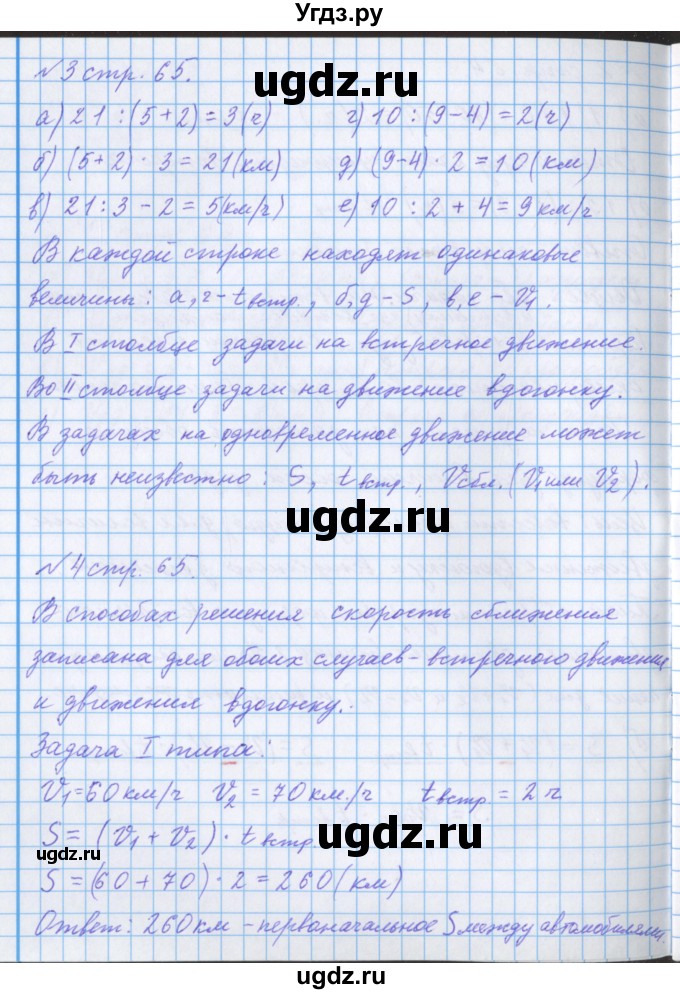 Угдз.ру
№3 стр. 65.
ugdz.ru
а) 21 : (5+2) = 3(ч) г) 10 : (9-4) = 2(ч)
б) (5+2) · 3 = 21(км) д) (9-4) · 2 = 10(км)
в) 21 : 3 - 2 = 5(км/ч) е) 10 : 2 + 4 = 9 км/ч
В каждой строке находят одинаковые
величины: а, г - t встр., б, д - S, в, е - V₁.
В I столбце задачи на встречное движение.
Во II столбце задачи на движение вдогонку.
В задачах на одновременное движение может
быть неизвестно: S, t встр., Vсбл. (V₁ или V₂).
ugdz.ru
№4 стр. 65.
В способах решения скорость сближения
записана для обоих случаев - встречного движения
и движения вдогонку.
Задача I типа:
V₁=60 км/ч V₂ = 70 км./ч t встр. = 2 ч
S = (V₁ + V₂) · t встр.
ugdz.ru
ugdz.ru
S = (60 + 70) · 2 = 260 (км)
Ответ: 260 км - первоначальное S между автомобилями.
ugdz.ru